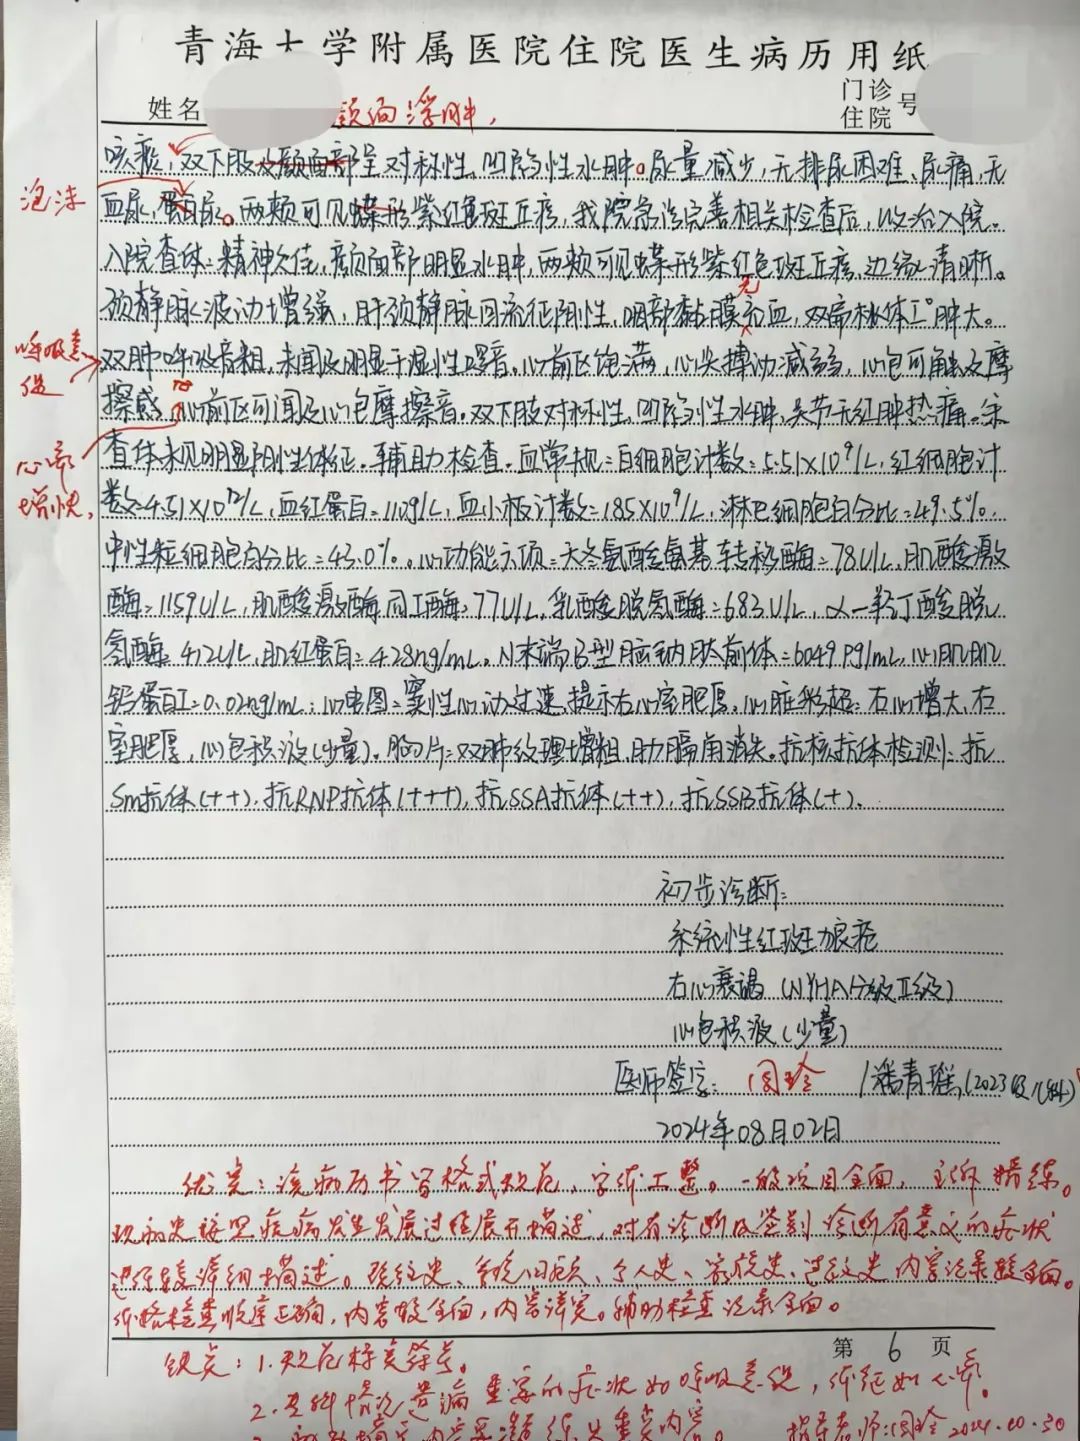 青海大学附属医院住院医生病历用纸
姓名
门诊
住院 号
颜面浮肿,
咳痰;双下肢及颜面部呈对称性、凹陷性水肿。尿量减少,无排尿困难、尿痛、无
泡沫
血尿,蛋白尿。两颊可见蝶形紫红色斑丘疹,我院急诊完善相关检查后,收治入院。
入院查体:精神欠佳,颜面部明显水肿,两颊可见蝶形紫红色斑丘疹,边缘清晰。
无
颈静脉波动增强,肝颈静脉回流征阳性,咽部黏膜充血,双扁桃体I°肿大。
呼吸急促
双肺呼吸音粗,未闻及明显干湿性啰音。心前区饱满,心尖搏动减弱,心包可触及摩
擦感,心前区可闻及心包摩擦音。双下肢对称性、凹陷性水肿,关节无红肿热痛。余
心率增快,
查体未见明显阳性体征。辅助检查:血常规:白细胞计数:5.51×10^9/L,红细胞计
数:4.51×10^12/L,血红蛋白:110g/L,血小板计数:185×10^9/L,淋巴细胞百分比:49.5%,
中性粒细胞百分比:43.0%。心功能六项:天冬氨酸氨基转移酶:78U/L,肌酸激
酶:1159U/L,肌酸激酶同工酶:77U/L,乳酸脱氢酶:683U/L,α-羟丁酸脱
氢酶:412U/L,肌红蛋白:428ng/mL。N末端B型脑钠肽前体:6049pg/mL,心肌肌
钙蛋白I:0.02ng/mL;心电图:窦性心动过速,提示右心室肥厚。心脏彩超:右心增大,右
室肥厚,心包积液(少量)。胸片:双肺纹理增粗,肋膈角消失。抗核抗体检测:抗
Sm抗体(++),抗RNP抗体(+++),抗SSA抗体(++),抗SSB抗体(+)。
初步诊断:
系统性红斑狼疮
右心衰竭(NYHA分级II级)
心包积液(少量)
医师签字:闫玲/潘青瑶(2023级儿科)
2024年08月02日
优点:该病历书写格式规范,字体工整。一般项目全面,主诉精练。
现病史按照疾病发生发展过程展开描述,对有诊断及鉴别诊断有意义的症状
进行较详细描述。既往史、系统回顾、个人史、家族史、过敏史内容记录较全面。
体格检查顺序正确,内容较全面,内容详实。辅助检查记录全面。
第 6 页
缺点:1.规范标点符号。
2.专科情况 重要的症状如呼吸急促,体征如心率。
指导老师:闫玲 2024.10.30